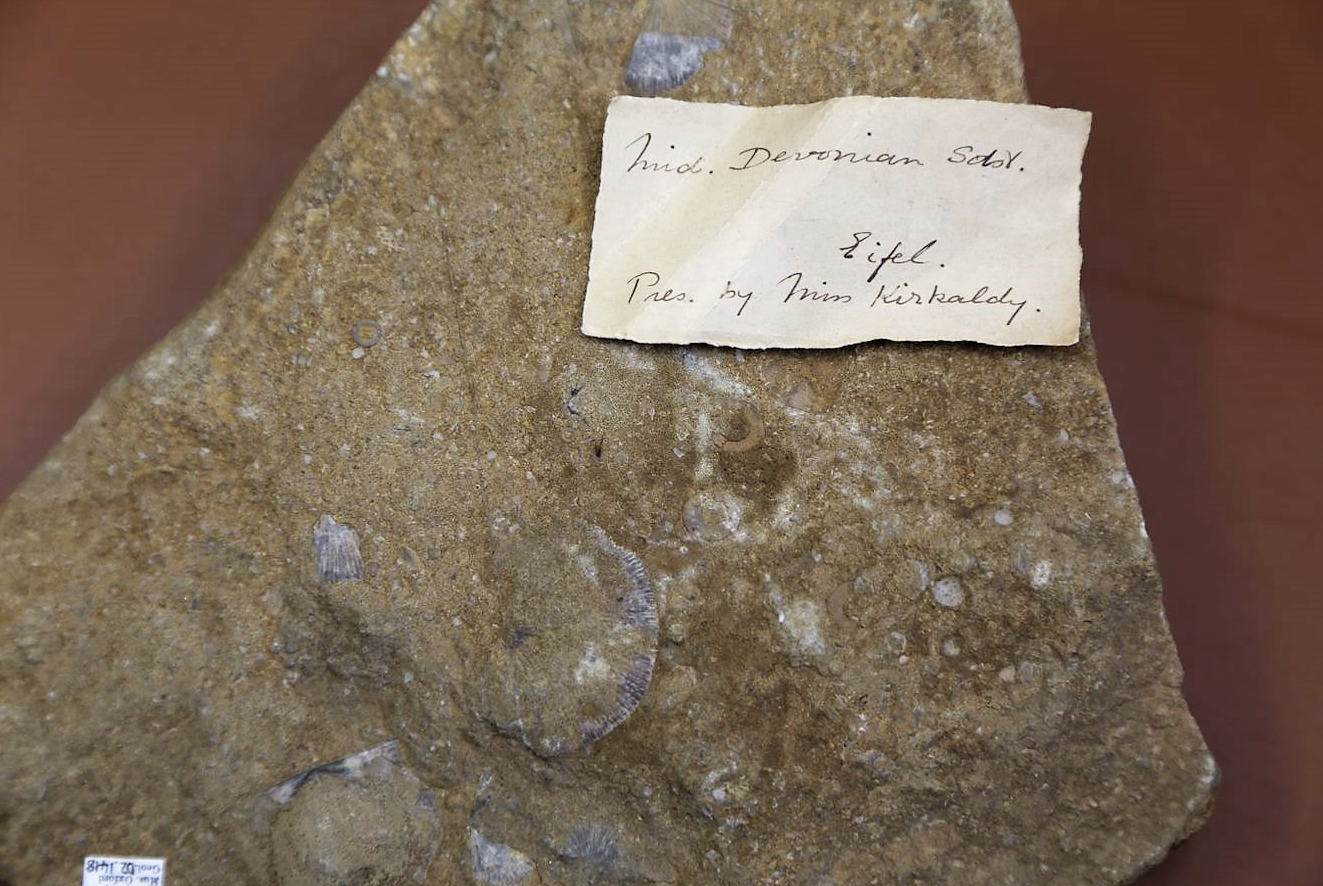 Mid. Devonian Sdst.
Eifel.
Pres. by Miss Kirkaldy.
Mus. Oxford
Geol. D2.1418